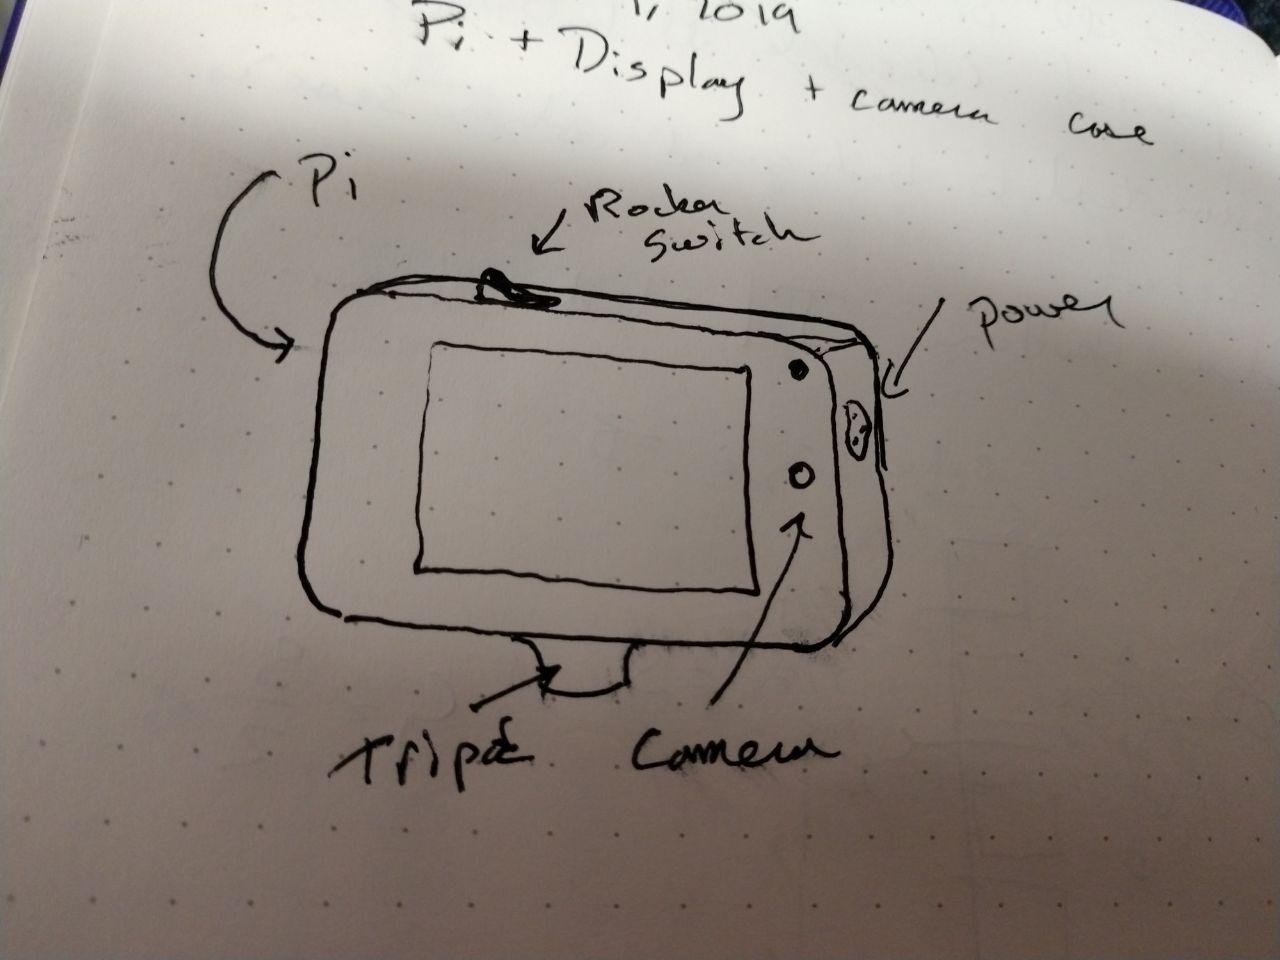 1, 2019
Pi + Display + camera case
Pi
Rocker
switch
power
Tripod
Camera